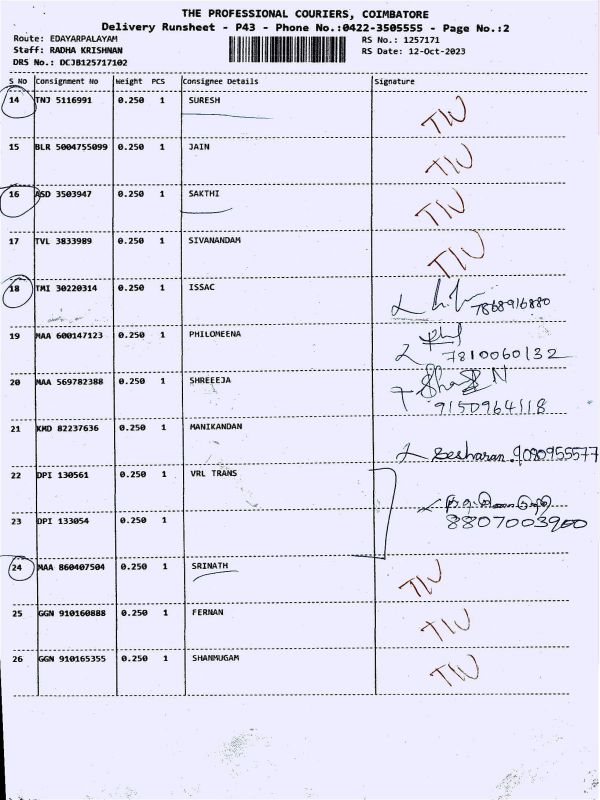 THE PROFESSIONAL COURIERS, COIMBATORE
Delivery Runsheet - P43 - Phone No.:0422-3505555 - Page No.:2
Route: EDAYARPALAYAM RS No.: 1257171
Staff: RADHA KRISHNAN RS Date: 12-Oct-2023
DRS No.: DCJB125717102
S No Consignment No Weight PCS Consignee Details Signature
14 TNJ 5116991 0.250 1 SURESH
15 BLR 5004755099 0.250 1 JAIN
16 ASD 3503947 0.250 1 SAKTHI
17 TVL 3833989 0.250 1 SIVANANDAM
18 TMI 30220314 0.250 1 ISSAC 7868916880
19 MAA 600147123 0.250 1 PHILOMEENA
7810060132
20 MAA 569782388 0.250 1 SHREEEJA
9150964118
21 KMD 82237636 0.250 1 MANIKANDAN
Sesharan. 9080955577
22 DPI 130561 0.250 1 VRL TRANS
23 DPI 133054 0.250 1 8807003900
24 MAA 860407504 0.250 1 SRINATH
25 GGN 910160888 0.250 1 FERNAN
26 GGN 910165355 0.250 1 SHANMUGAM